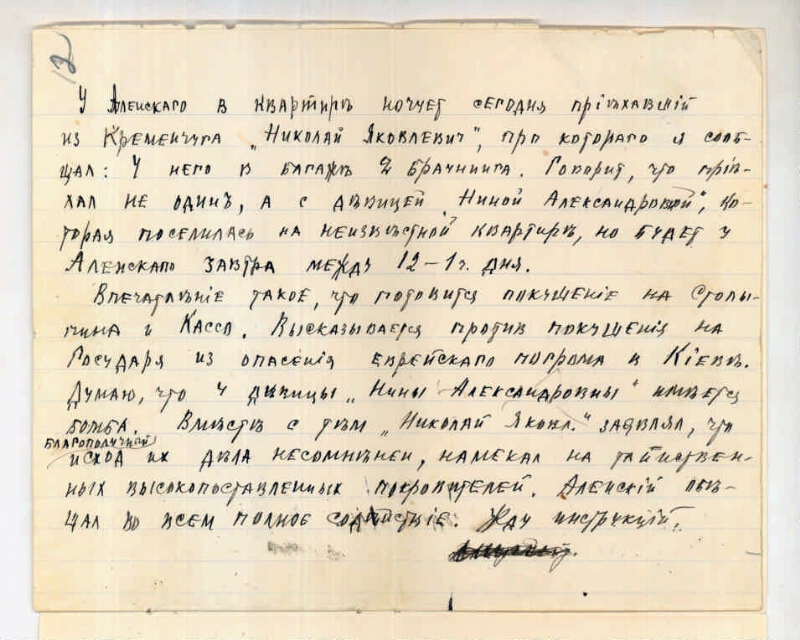 12
У Аленскаго в квартирѣ ночует сегодня пріѣхавшій
из Кременчуга „Николай Яковлевич", про котораго я сооб-
щал: У него в багажѣ 2 браунинга. Говорит, что пріѣ-
хал не один, а с дѣвицей „Ниной Александровной", ко-
торая поселилась на неизвѣстной квартирѣ, но будет у
Аленскаго завтра между 12–1 ч. дня.
Впечатлѣніе такое, что готовится покушеніе на Столы-
пина и Кассо. Высказывается против покушенія на
Государя из опасенія еврейскаго погрома в Кіевѣ.
Думаю, что у дѣвицы „Нины Александровны" имѣется
бомба. Вмѣстѣ с тѣм „Николай Яковл." заявлял, что
благополучный
исход их дѣла несомнѣнен, намекал на таинствен-
ных высокопоставленных покровителей. Аленскій обѣ-
щал во всем полное содѣйствіе. Жду инструкцій.